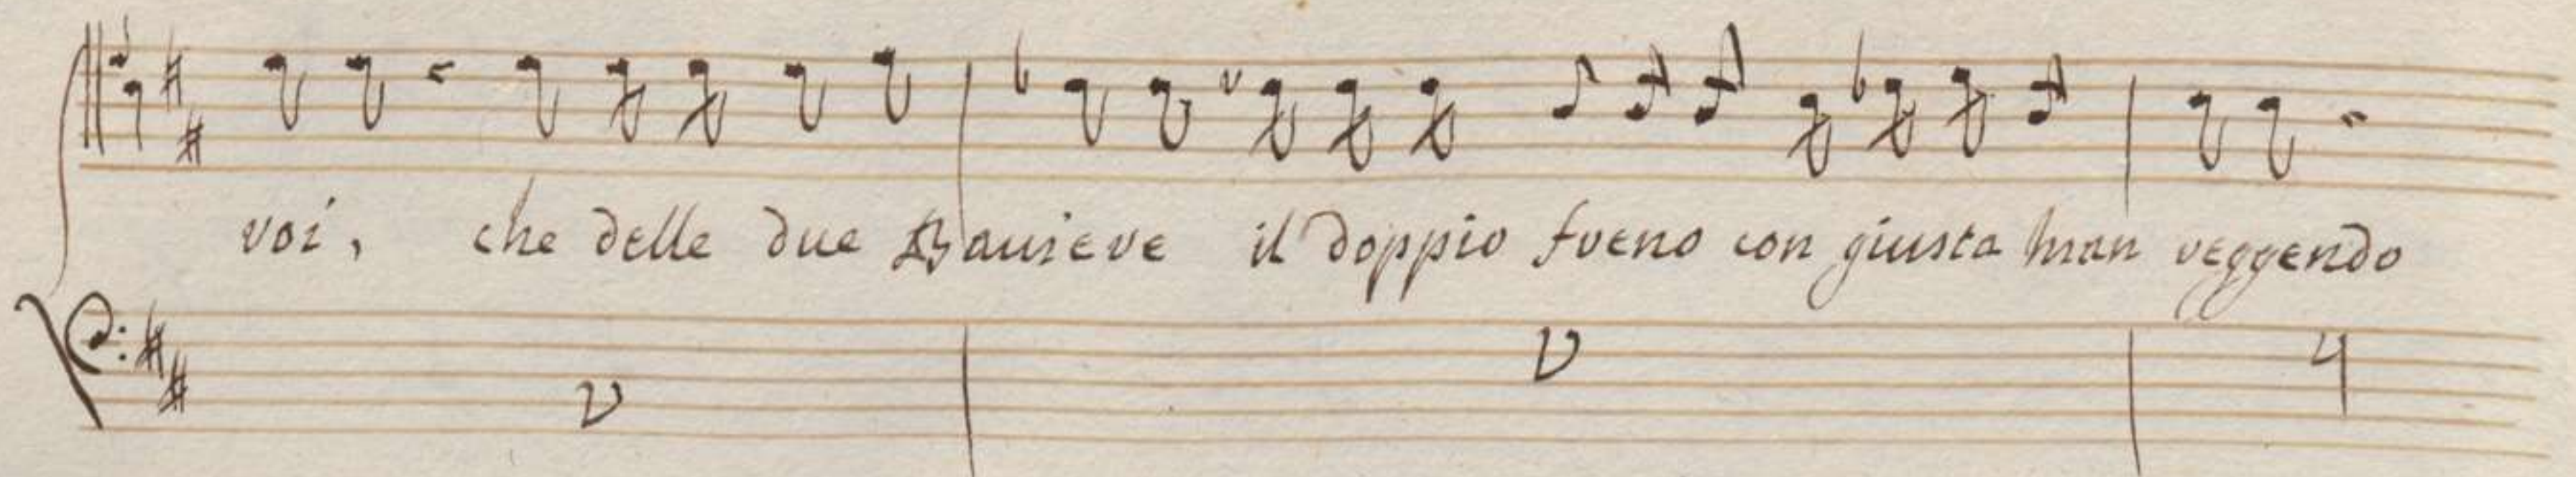 voi, che delle due Bauieve il doppio freno con giusta man reggendo